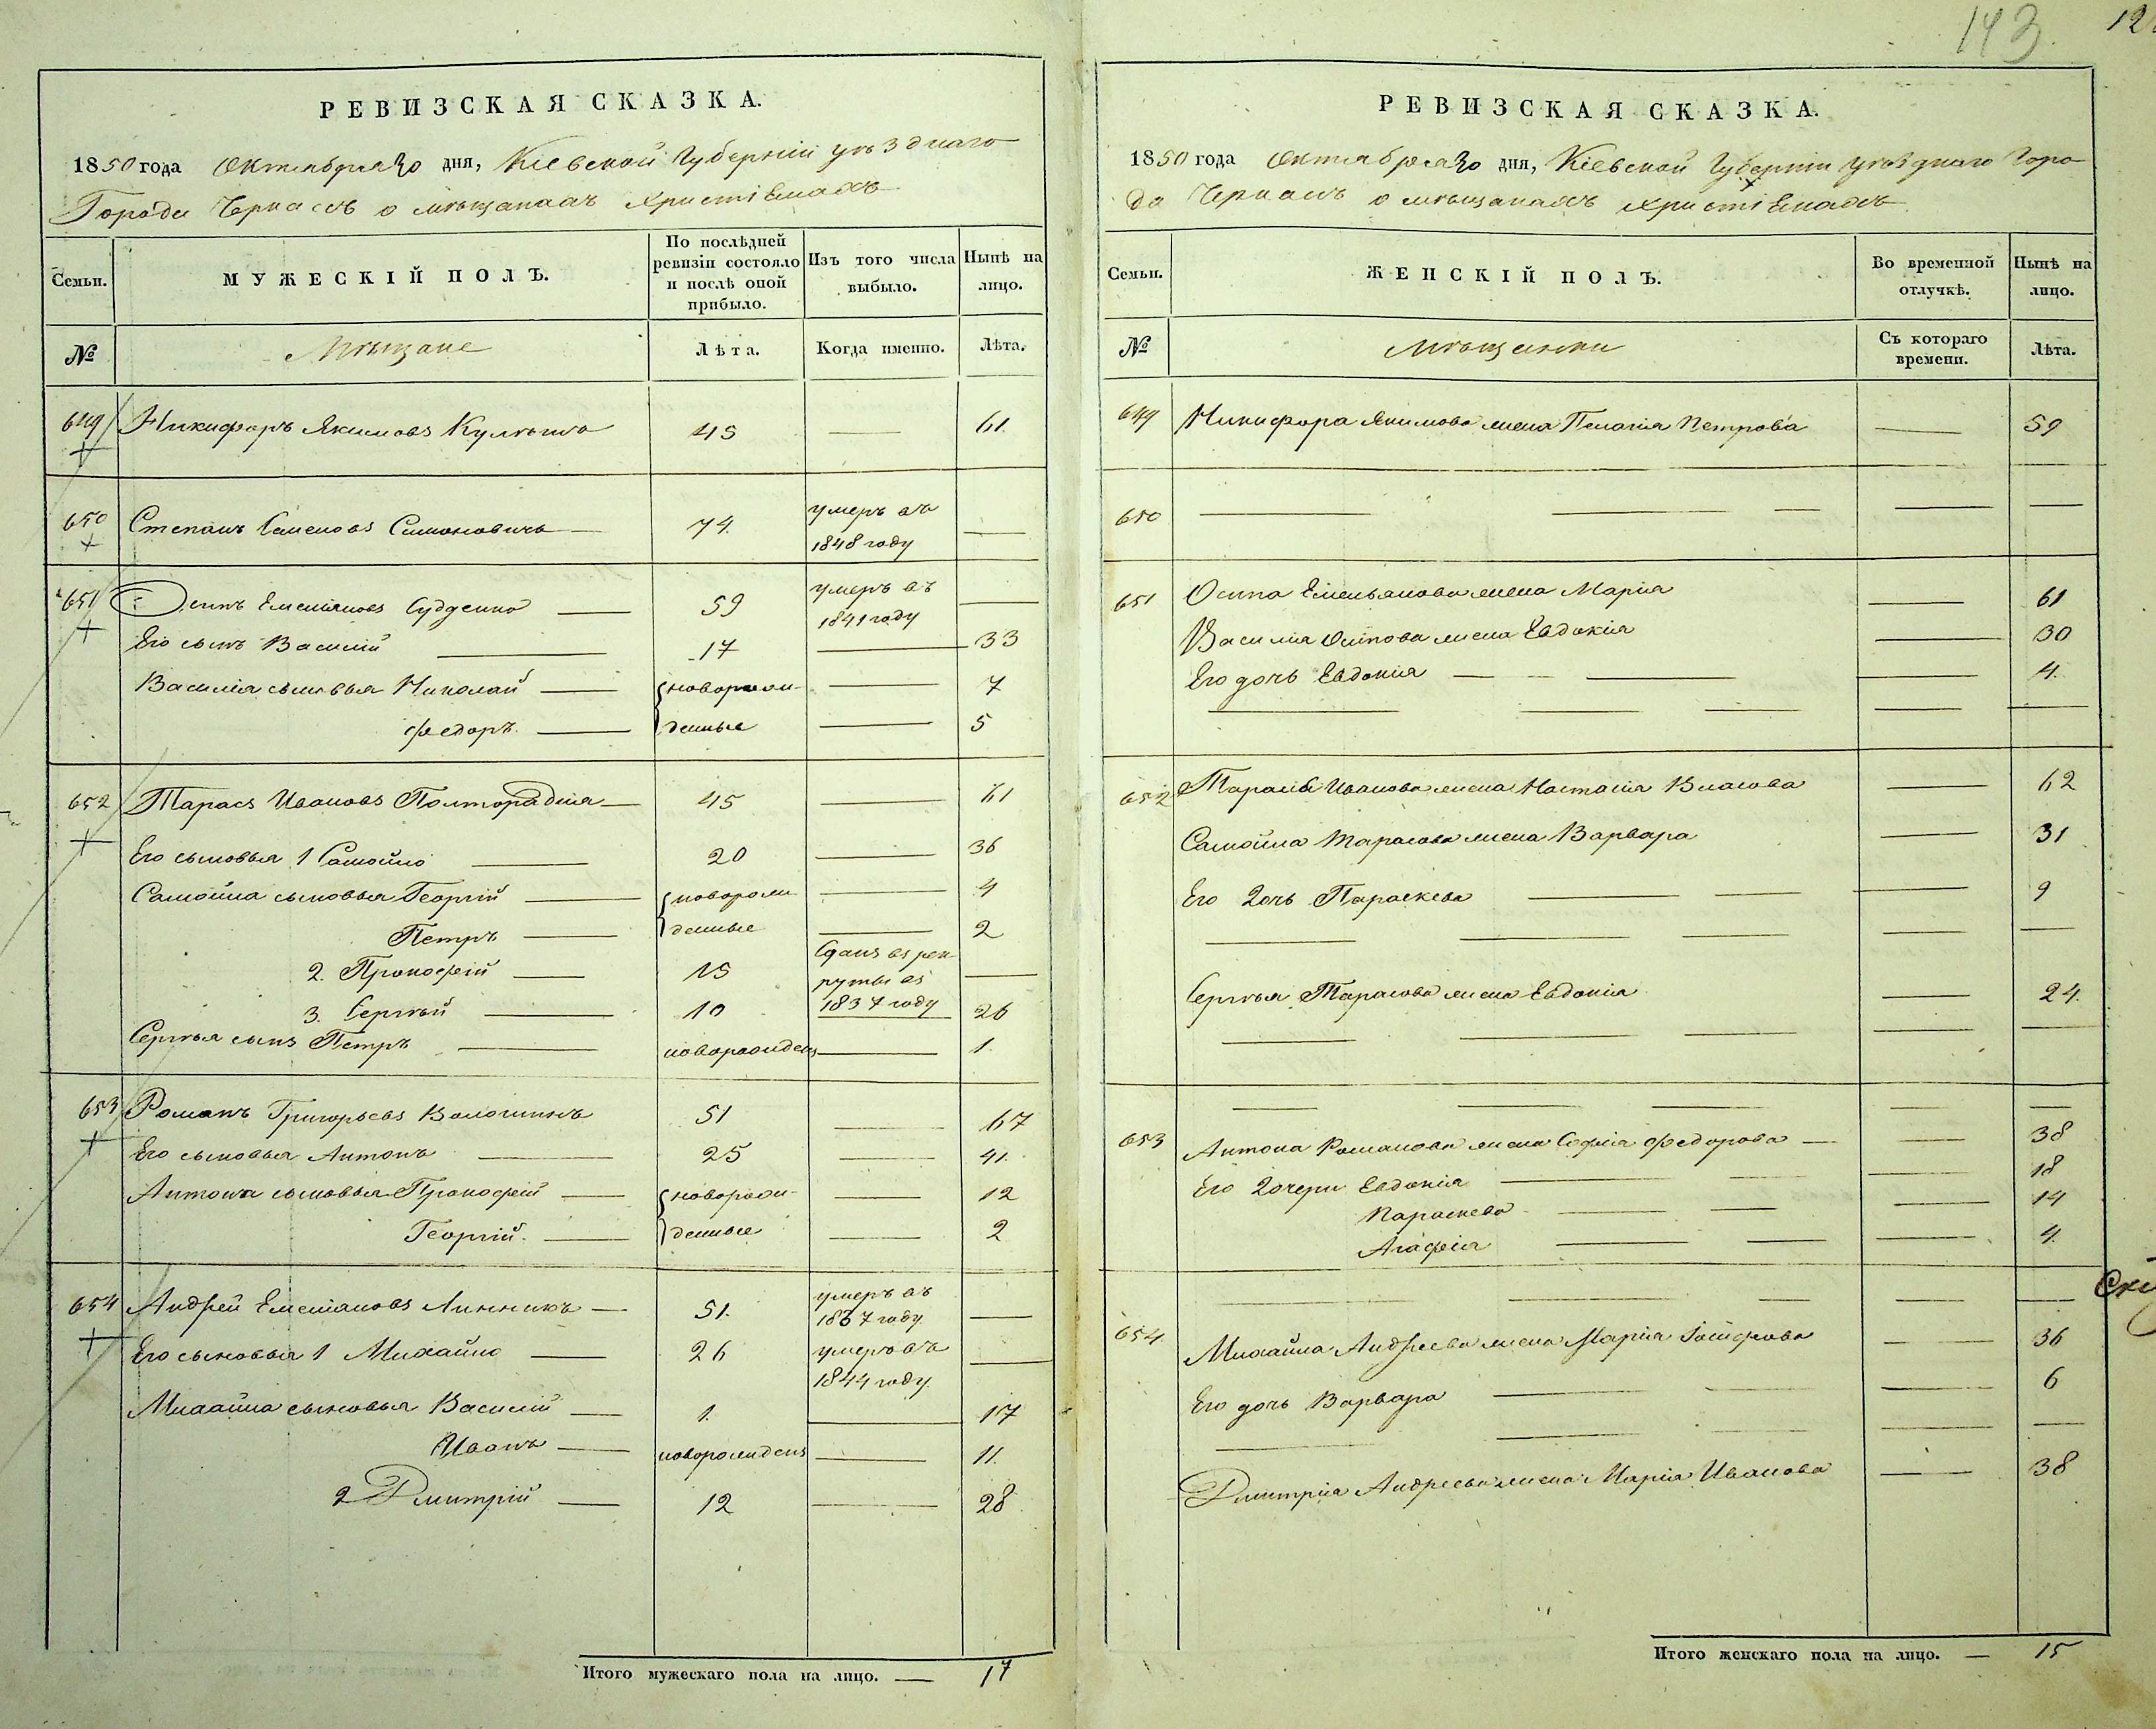 143
12
РЕВИЗСКАЯ СКАЗКА.
1850 года Октября 30 дня, Кіевской Губерніи уѣзднаго
Города Черкасъ о мѣщанахъ христіянахъ
Семьи.
МУЖЕСКІЙ ПОЛЪ.
По послѣдней ревизіи состояло и послѣ оной прибыло.
Изъ того числа выбыло.
Нынѣ на лицо.
№
Мѣщане
Лѣта.
Когда именно.
Лѣта.
649 Никифоръ Якимовъ 45 — 61
650 Степанъ Семеновъ Симоновичъ — 74. умеръ въ 1848 году —
651 Осипъ Емельяновъ Судденко — 59 умеръ въ 1841 году —
Его сынъ Василий — 17 — 33
Василія сыновья Николай — новорож- — 7
Федоръ. — денные — 5
652 Тарасъ Ивановъ Полторадня — 45 — 61
Его сыновья 1 Самойло — 20 — 36
Самойла сыновья Георгій — новорож- — 4
Петръ — денные — 2
2. Прокофій — 15 Сданъ въ рекруты въ 1837 году —
3. Сергѣй — 10 — 26
Сергѣя сынъ Петръ — новорожденъ — 1.
653 Романъ Григорьевъ Волошинъ 51 — 67
Его сыновья Антонъ — 25 — 41.
Антона сыновья Прокофій — новорож- — 12
Георгій. — денные — 2
654 Андрей Емельяновъ Линникъ — 51. умеръ въ 1837 году —
Его сыновья 1 Михайло — 26 умеръ въ 1844 году. —
Михайла сыновья Василій — 1. — 17
Иванъ — новорожденъ — 11.
2 Дмитрій — 12 — 28
Итого мужескаго пола на лицо. — 17
РЕВИЗСКАЯ СКАЗКА.
1850 года Октября 30 дня, Кіевской Губерніи уѣзднаго Горо-
да Черкасъ о мѣщанахъ христіянахъ
Семьи.
ЖЕНСКІЙ ПОЛЪ.
Во временной отлучкѣ.
Нынѣ на лицо.
№
Мѣщанки
Съ котораго времени.
Лѣта.
649 Никифора Якимова жена Пелагія Петрова — 59
650 — — — — —
651 Осипа Емельянова жена Марія — 61
Василія Осипова жена Евдокія — 30
Его дочь Евдокія — — — — 4.
652 Тараса Иванова жена Настасія Власова — 62
Самойла Тарасова жена Варвара — 31
Его дочь Параскева — — — 9
Сергѣя Тарасова жена Евдокія — 24.
653 Антона Романова жена Софія Федорова — — 38
Его дочери Евдокія — — — 18
Параскева — — — 14
Агафія — — — 4.
654 Михайла Андреева жена Марія — 36
Его дочь Варвара — — — 6
Дмитрія Андреева жена Марія Иванова — 38
Итого женскаго пола на лицо. — 15